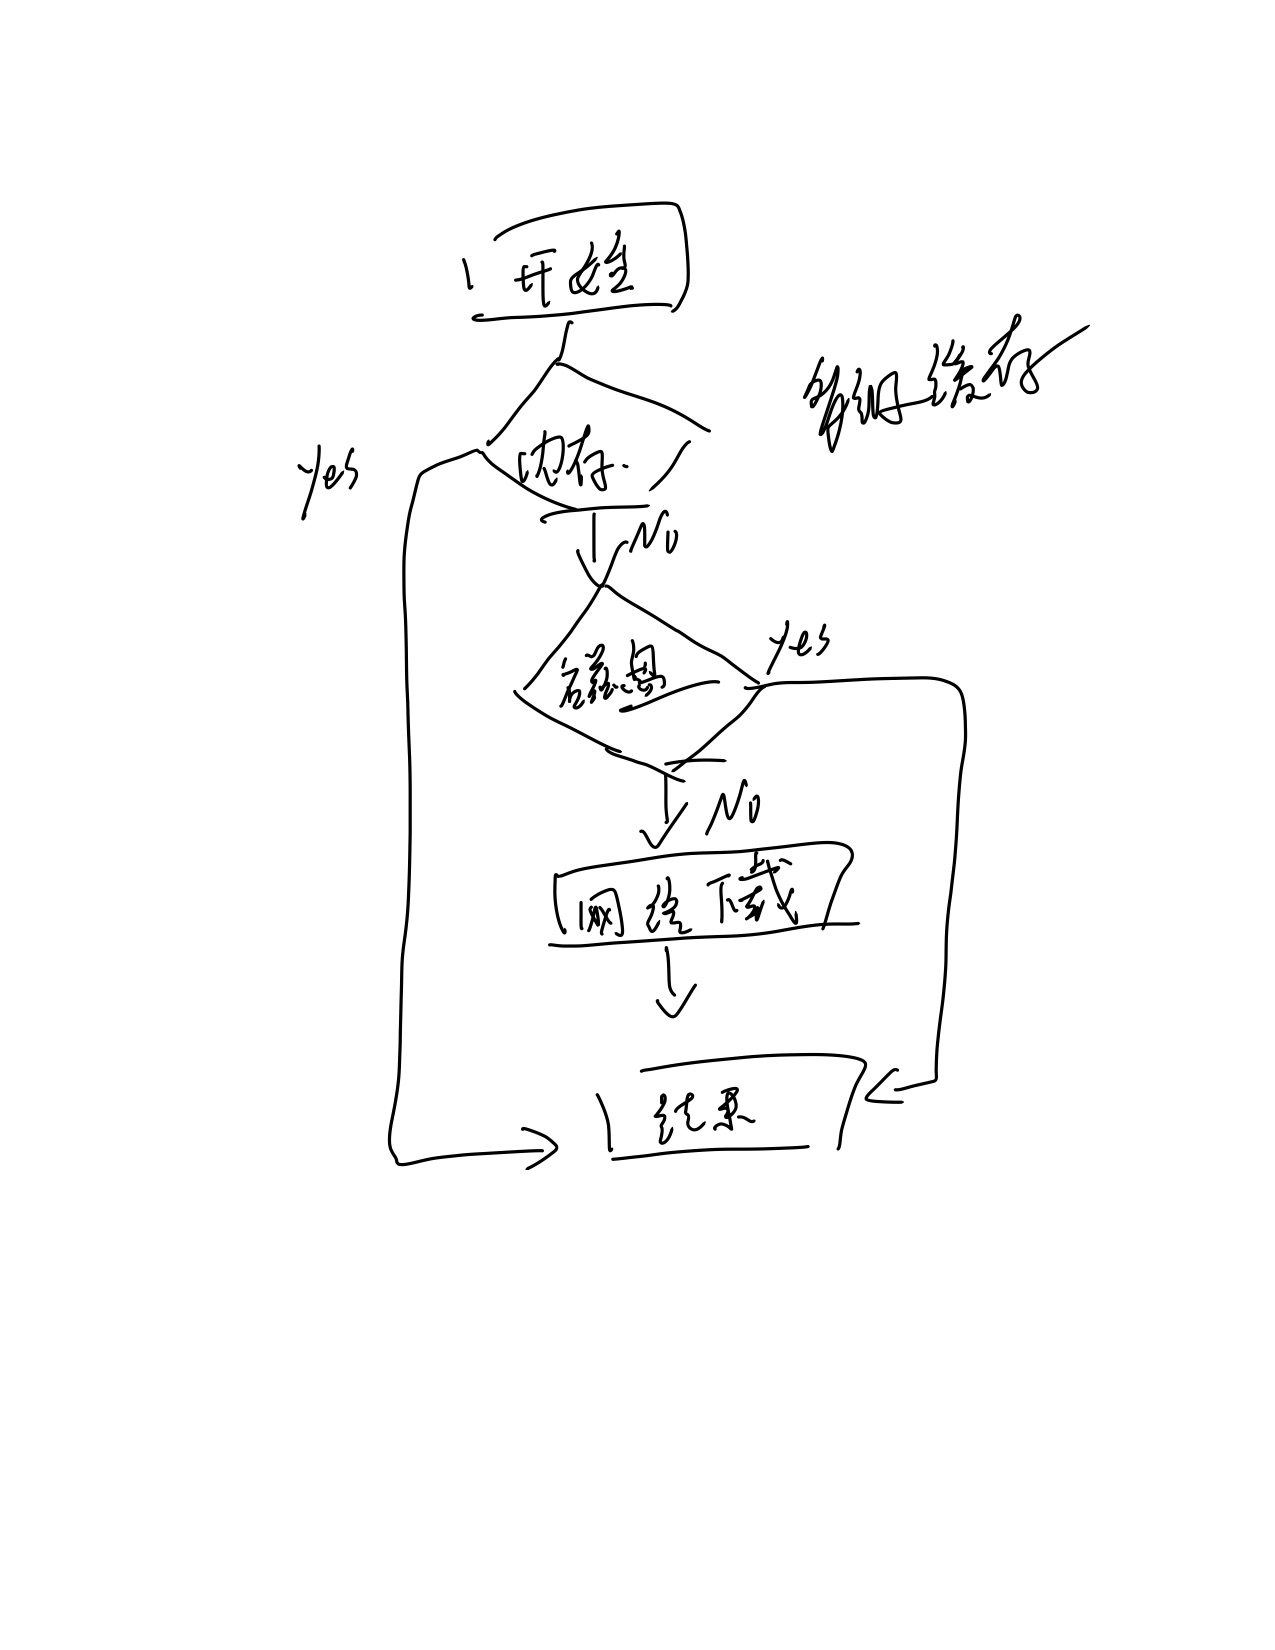 开始
多级缓存
yes
内存.
No
yes
磁盘
No
网络下载
结果